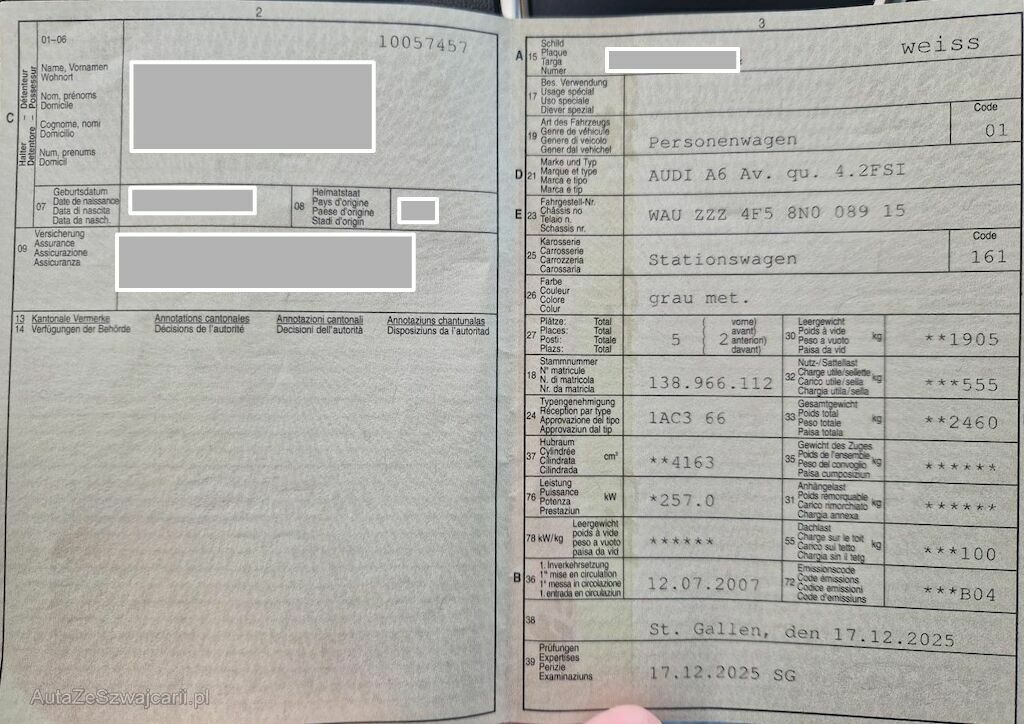 2
01-06
10057457
C
Halter – Détenteur
Detentore – Possessur
Name, Vornamen
Wohnort
Nom, prénoms
Domicile
Cognome, nomi
Domicilio
Num, prenums
Domicil
07
Geburtsdatum
Date de naissance
Data di nascita
Data da nasch.
08
Heimatstaat
Pays d'origine
Paese d'origine
Stadi d'origin
09
Versicherung
Assurance
Assicurazione
Assicuranza
13 Kantonale Vermerke Annotations cantonales Annotazioni cantonali Annotaziuns chantunalas
14 Verfügungen der Behörde Décisions de l'autorité Decisioni dell'autorità Disposiziuns da l'autoritad
AutaZeSzwajcarii.pl
3
A 15
Schild
Plaque
Targa
Numer
weiss
17
Bes. Verwendung
Usage spécial
Uso speciale
Diever spezial
19
Art des Fahrzeugs
Genre de véhicule
Genere di veicolo
Gener dal vehichel
Personenwagen
Code
01
D 21
Marke und Typ
Marque et type
Marca e tipo
Marca e tip
AUDI A6 Av. qu. 4.2FSI
E 23
Fahrgestell-Nr.
Châssis no
Telaio n.
Schassis nr.
WAU ZZZ 4F5 8N0 089 15
25
Karosserie
Carrosserie
Carrozzeria
Carossaria
Stationswagen
Code
161
26
Farbe
Couleur
Colore
Colur
grau met.
27
Plätze: Total
Places: Total
Posti: Totale
Plazs: Total
5
2
vorne)
avant)
anteriori)
davant)
30
Leergewicht
Poids à vide
Peso a vuoto
Paisa da vid
kg
**1905
18
Stammnummer
N° matricule
N. di matricola
Nr. da matricla
138.966.112
32
Nutz-/Sattellast
Charge utile/sellette
Carico utile/sella
Chargia utila/sella
kg
***555
24
Typengenehmigung
Réception par type
Approvazione del tipo
Approvaziun dal tip
1AC3 66
33
Gesamtgewicht
Poids total
Peso totale
Paisa totala
kg
**2460
37
Hubraum
Cylindrée
Cilindrata
Cilindrada
cm³
**4163
35
Gewicht des Zuges
Poids de l'ensemble
Peso del convoglio
Paisa cumposiziun
kg
******
76
Leistung
Puissance
Potenza
Prestaziun
kW
*257.0
31
Anhängelast
Poids remorquable
Carico rimorchiato
Chargia annexa
kg
******
78 kW/kg
Leergewicht
poids à vide
peso a vuoto
paisa da vid
******
55
Dachlast
Charge sur le toit
Carico sul tetto
Chargia sin il tetg
kg
***100
B 36
1. Inverkehrsetzung
1re mise en circulation
1a messa in circolazione
1. entrada en circulaziun
12.07.2007
72
Emissionscode
Code émissions
Codice emissioni
Code d'emissiuns
***B04
38
St. Gallen, den 17.12.2025
39
Prüfungen
Expertises
Perizie
Examinaziuns
17.12.2025 SG